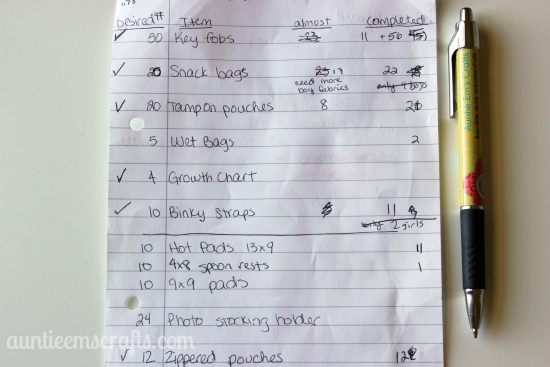 Desired # Item almost completed
✓ 50 Key fobs 23 11 + 50
✓ 20 Snack bags 19 22
need more boy fabrics only 4 boys
✓ 20 Tampon pouches 8 20
5 Wet Bags 2
✓ 4 Growth Chart
✓ 10 Binky Straps 11
only 2 girls
10 Hot Pads 13x9 11
10 4x8 spoon rests 1
10 9x9 pads
24 Photo stocking holder
✓ 12 Zippered pouches 12
Auntie Em's Crafts
auntieemscrafts.com